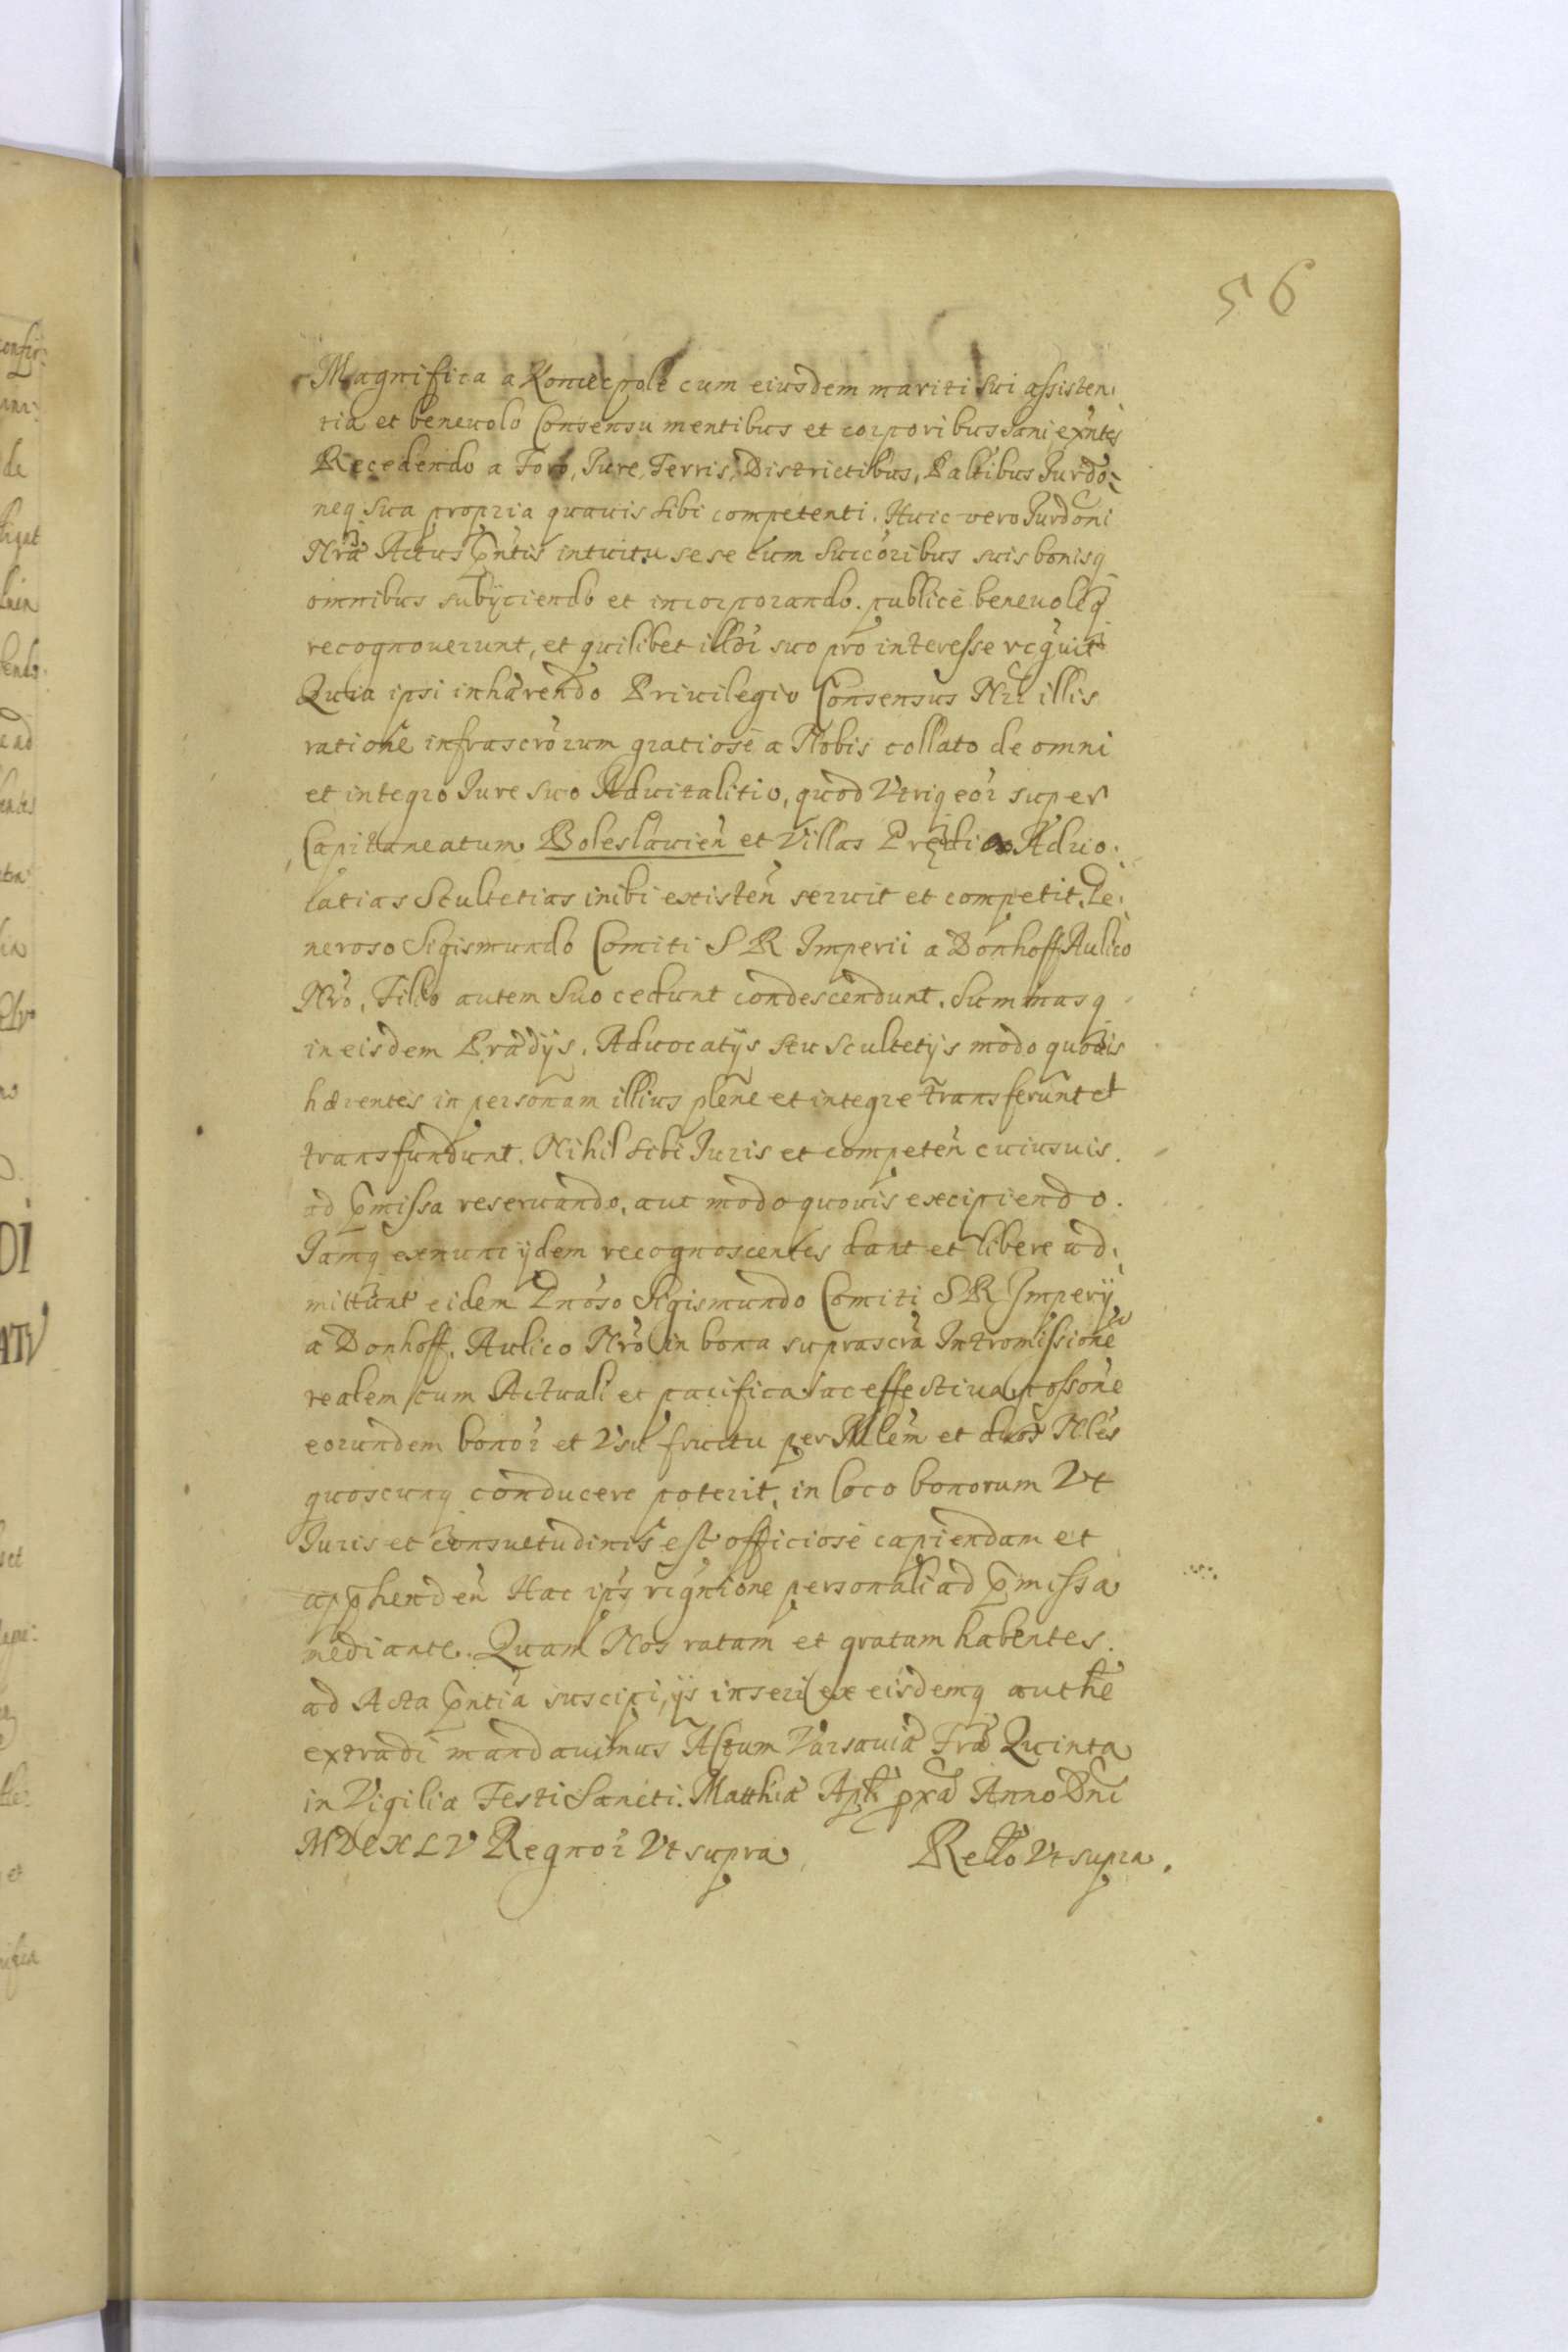 56
Magnifica a Koniecpole cum eiusdem mariti sui assisten:
tia et beneuolo Consensu mentibus et corporibus sani exntes
Recedendo a Foro, Iure, Terris, Districtibus, Paltibus Iurdo=
neq sua propria quauis sibi competenti. Huic vero Iurdoni
Nrae Actus pntis intuitu sese cum Succoribus suis bonisq
omnibus subyciendo et incorporando. publicè beneuoleq
recognouerunt, et quilibet illor suo pro interesse rcguit
Quia ipsi inhærendo Priuilegio Consensus Nri illis
ratione infrascrorum gratiosè a Nobis collato de omni
et integro Iure suo Aduitalitio, quod Vtriq eor super
Capitaneatum Boleslauien et Villas Prædia Aduo:
catias Scultetias inibi existen seruit et competit. Ge:
neroso Sigismundo Comiti S R Imperii a Donhoff Aulico
Nro, Filio autem suo cedunt condescendunt. Summasq
in eisdem Prædijs, Aduocatijs seu Scultetijs modo quouis
hærentes in personam illius plene et integre transferunt et
transfundunt. Nihil sibi Iuris et competen cuiusuis.
ad pmissa reseruando, aut modo quouis excipiendo.
Iamq exnunc ijdem recognoscentes dant et libere ad:
mittunt eidem Gnoso Sigismundo Comiti S R Imperij
a Donhoff, Aulico Nro in bona suprascra Intromissione
realem cum Actuali et pacifica ac effectiua possone
eorundem bonor et Vsu fructu per Mlem et duos Nles
quoscunq conducere poterit, in loco bonorum Vt
Iuris et consuetudinis est officiosè capiendam et
apphenden Hac ips rcgntione personali ad pmissa
mediante. Quam Nos ratam et gratam habentes.
ad Acta pntia suscipi, ijs inseri ex eisdemq authe
extradi mandauimus Actum Varsauiæ Fra Quinta
in Vigilia Festi Sancti Matthiæ Apli pxa Anno Dni
MDCXLV Regnor Vt supra Rello Vt supra.